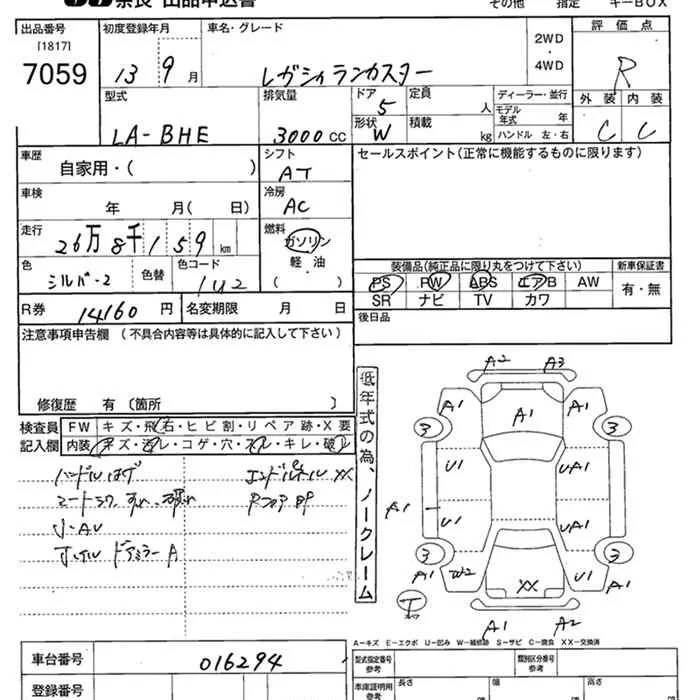 奈良 出品申込書
その他 指定 キーBOX
出品番号
[1817]
7059
初度登録年月
13 9月
車名・グレード
レガシィランカスター
2WD
・
4WD
評価点
R
型式
LA-BHE
排気量
3000cc
ドア
5
形状
W
定員 人
積載 kg
ディーラー・並行
モデル年式 年
ハンドル 左・右
外装 内装
C C
車歴
自家用・( )
シフト
AT
セールスポイント(正常に機能するものに限ります)
車検
年 月( 日)
冷房
AC
走行
26万8千159km
燃料
ガソリン
軽・油
( )
色
シルバー2
色替
色コード
1U2
装備品(純正品に限り丸をつけて下さい)
PS PW ABS エアB AW
SR ナビ TV カワ
新車保証書
有・無
R券 14160円
名変期限 月 日
後日品
注意事項申告欄(不具合内容等は具体的に記入して下さい)
修復歴 有〔箇所 〕
検査員記入欄
FW キズ・飛石・ヒビ割・リペア跡・X要
内装 キズ・汚レ・コゲ・穴・スレ・キレ・破レ
ハンドルはげ
小・AU
ドアミラーA
XX
低年式の為、ノークレーム
A2 A3
A1 A1 A1
3 3
U1 UA1
A1
U1 UA1
3 3
A1 W2 XX U1 A1
T
A1 A2
A-キズ E-エクボ U-凹み W-補修跡 S-サビ C-腐食 XX-交換済
車台番号 016294
型式指定番号
参考
類別区分番号
参考
登録番号
車庫証明用
参考
長さ 幅 高さ